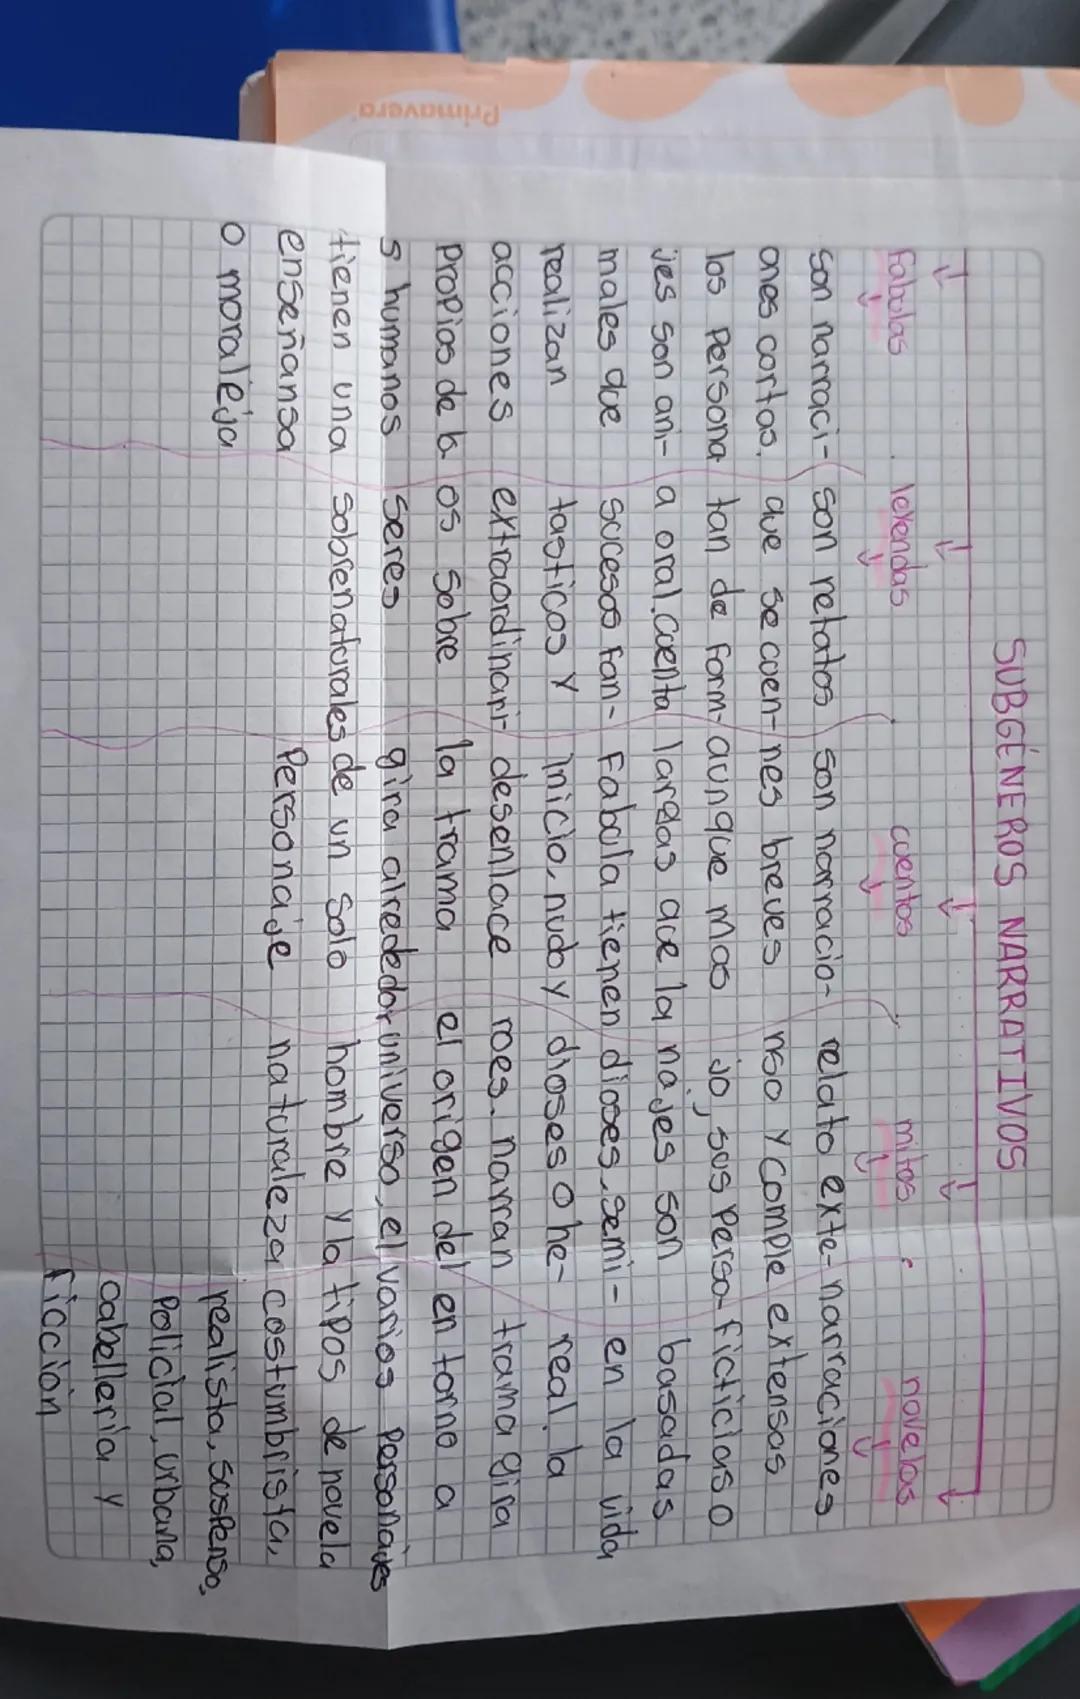 SUBGÉNEROS NARRATIVOS
Fabulas
son narraci-
ones cortas.
los persona
jes son ani-
males que
realizan
acciones
propios de lo
s humanos
tienen una
enseñansa
o moraleja
leyendas
son relatos
que se cuen-
tan de form-
a oral. cuenta
sucesos fan-
tasticos y
extraordinari-
os sobre
seres
sobrenaturales
cuentos
son narracio-
nes breves
aunque mas
largas que la
Fabula tienen
inicio, nudo y
desenlace
la trama
gira alrededor
de un solo
personaje
mitos
relato exte-
nso y comple
jo, sus perso-
najes son
dioses, semi-
dioses o he-
roes. narran
el origen del
universo, el
hombre y la
naturaleza
novelas
narraciones
extensas
ficticias o
basadas
en la vida
real. la
trama gira
en torno a
varios personajes
tipos de novela
costumbrista,
realista, suspenso,
policial, urbana,
caballeria y
ficcion
Primavera